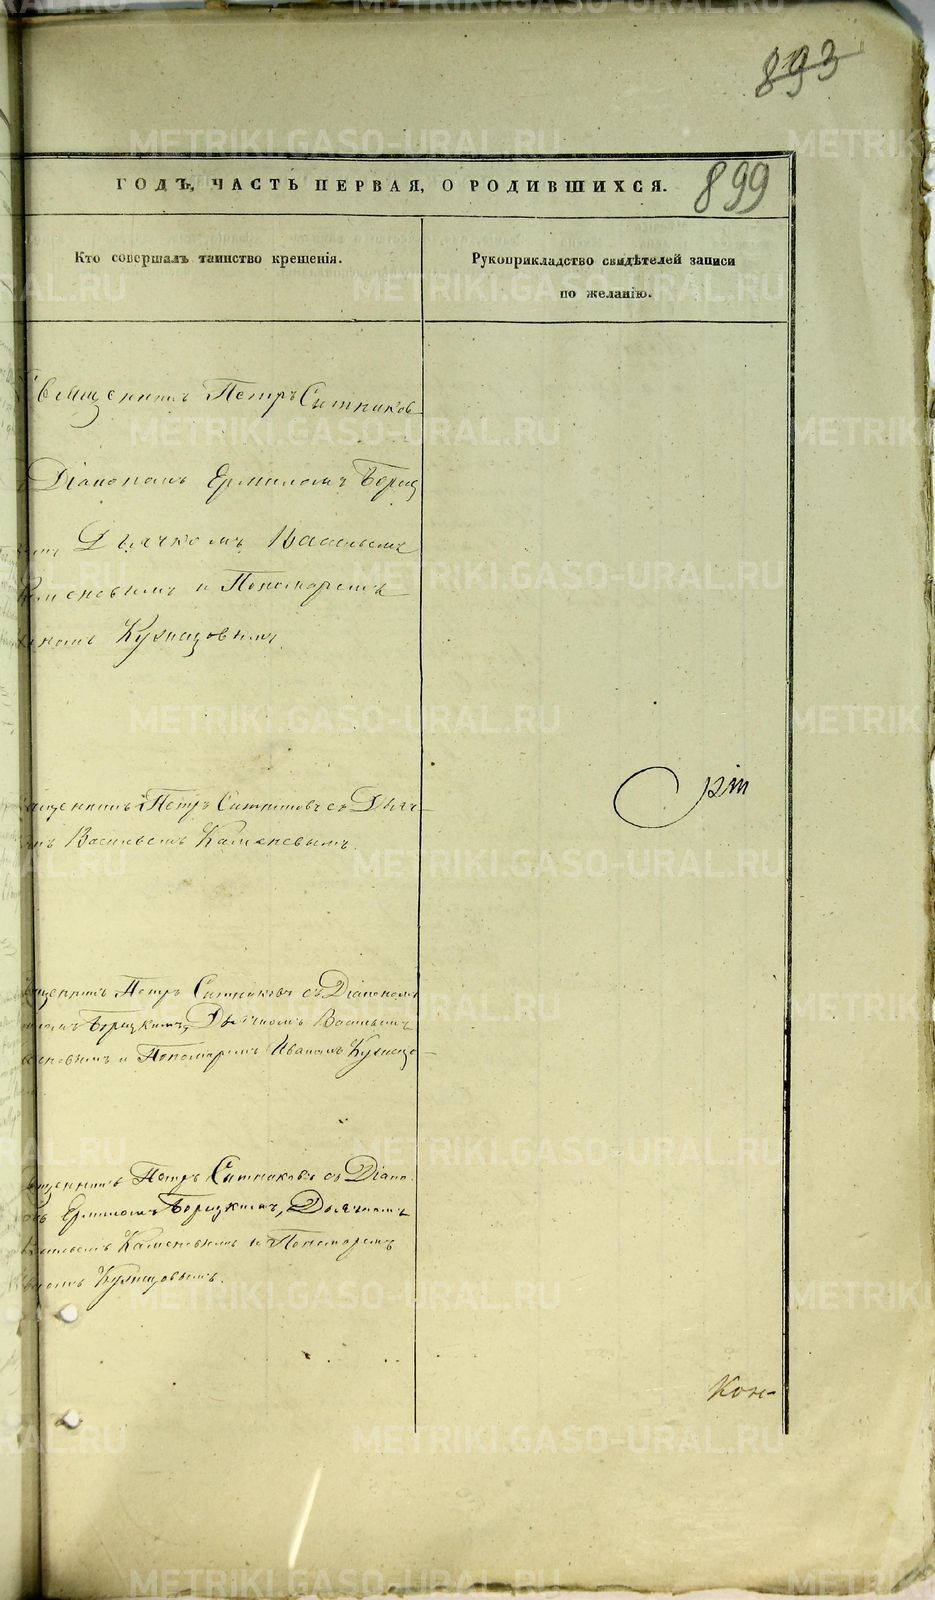 893
ГОДЪ, ЧАСТЬ ПЕРВАЯ, О РОДИВШИХСЯ.
899
Кто совершалъ таинство крещенія.
Рукоприкладство свидѣтелей записи
по желанію.
Священникъ Петръ Ситников
Діакономъ Ермиломъ Бориц
Дьячкомъ Васильемъ
Каменовымъ и Пономаремъ
Кузнецовымъ.
ященникъ Петръ Ситниковъ съ Дьяч-
Васильемъ Каменевымъ.
ященникъ Петръ Ситниковъ съ Діакономъ
Борицкимъ, Дьячкомъ Васильемъ
еновымъ и Пономаремъ Иваномъ Кузнецо-
ященникъ Петръ Ситниковъ съ Діако-
Ермиломъ Борицкимъ, Дьячкомъ
Васильемъ Каменовымъ и Пономаремъ
Кузнецовымъ.
Кон-
METRIKI.GASO-URAL.RU